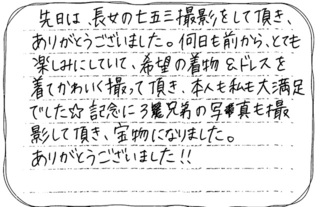 先日は、長女の七五三撮影をして頂き、
ありがとうございました。何日も前から、とても
楽しみにしていて、希望の着物&ドレスを
着てかわいく撮って頂き、本人も私も大満足
でした☆ 記念に3兄弟の写真も撮
影して頂き、宝物になりました。
ありがとうございました!!